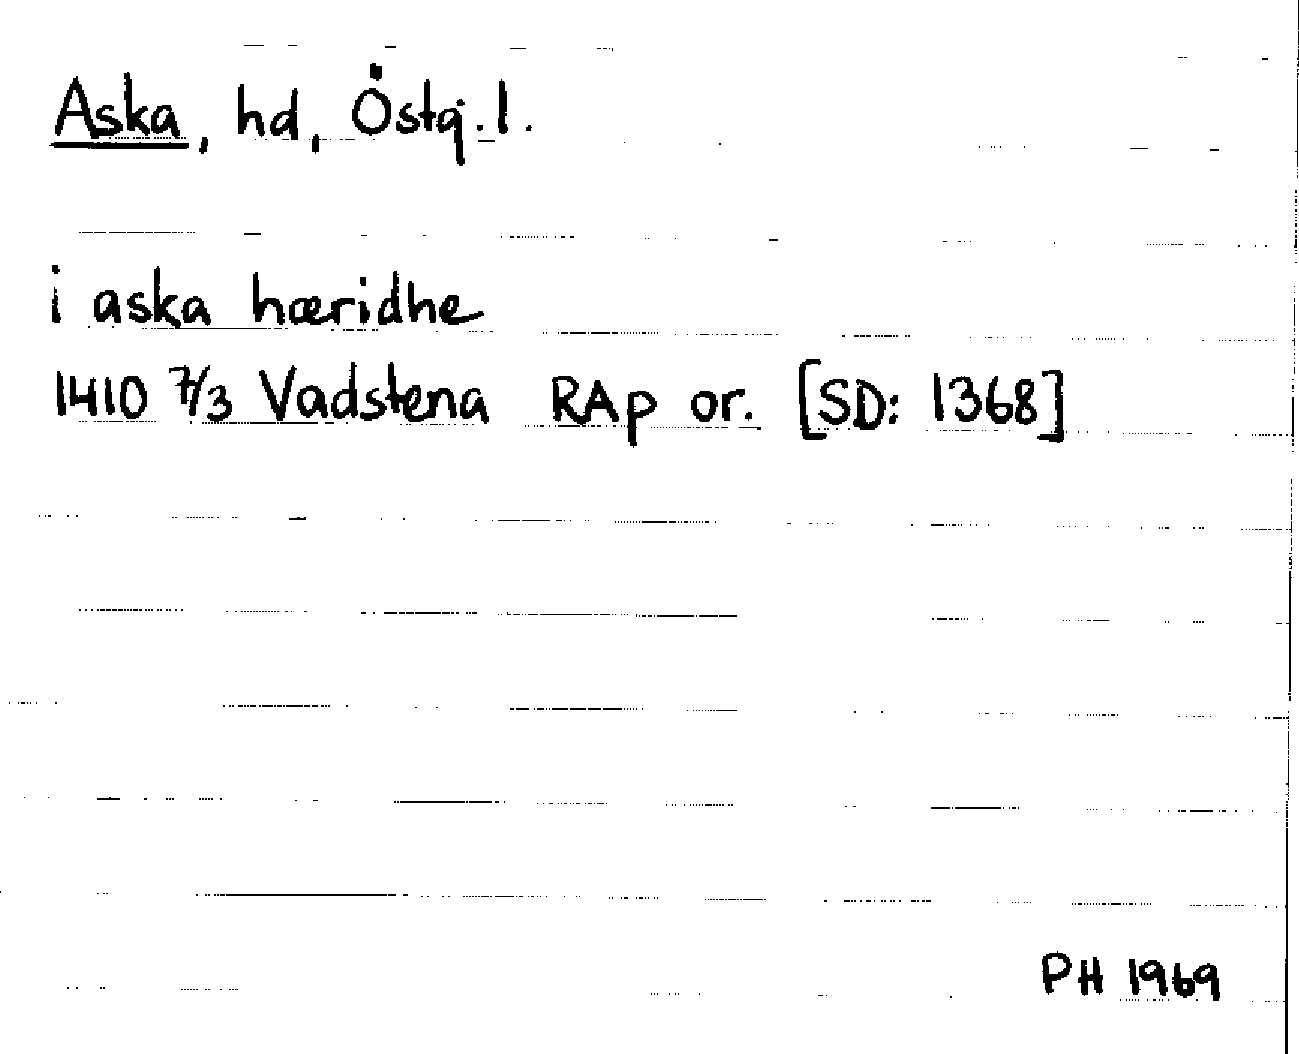 Aska, hd, Östg.l.
i aska hæridhe
1410 7/3 Vadstena RAp or. [SD: 1368]
PH 1969